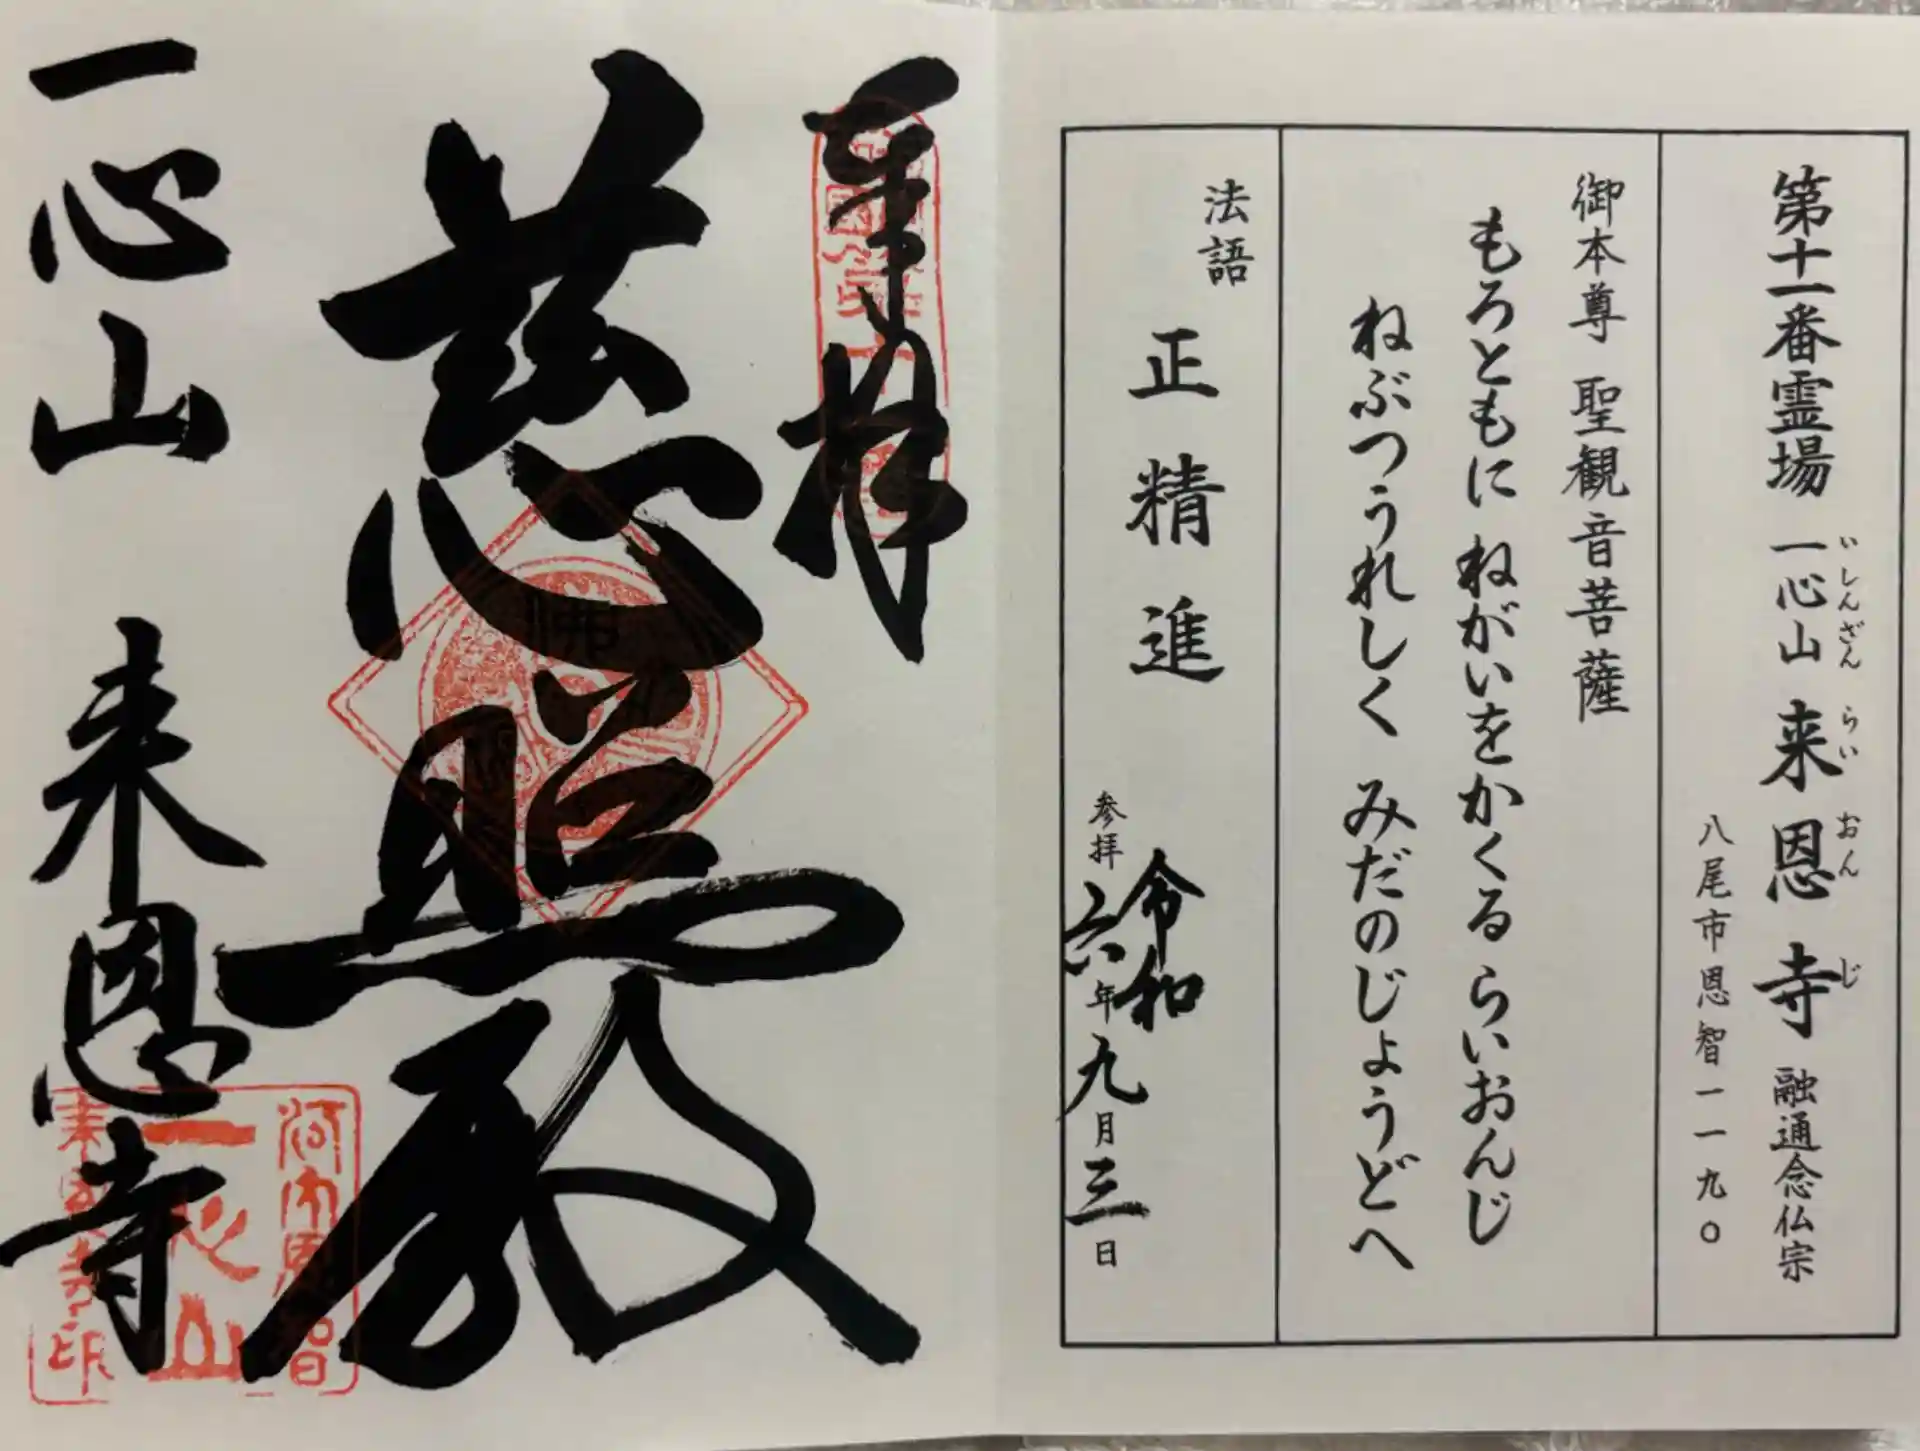 第十一番霊場 一心山 来恩寺 融通念仏宗
いしんざん らいおんじ
八尾市恩智一一九〇
御本尊 聖観音菩薩
もろともに ねがいをかくる らいおんじ
ねぶつうれしく みだのじょうどへ
法語 正精進
参拝 令和六年九月三日
奉拝
慈照殿
一心山 来恩寺
河内恩智
一心山
来恩寺印